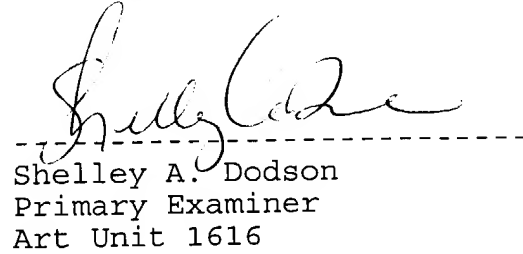 Shelley A. Dodson
Primary Examiner
Art Unit 1616